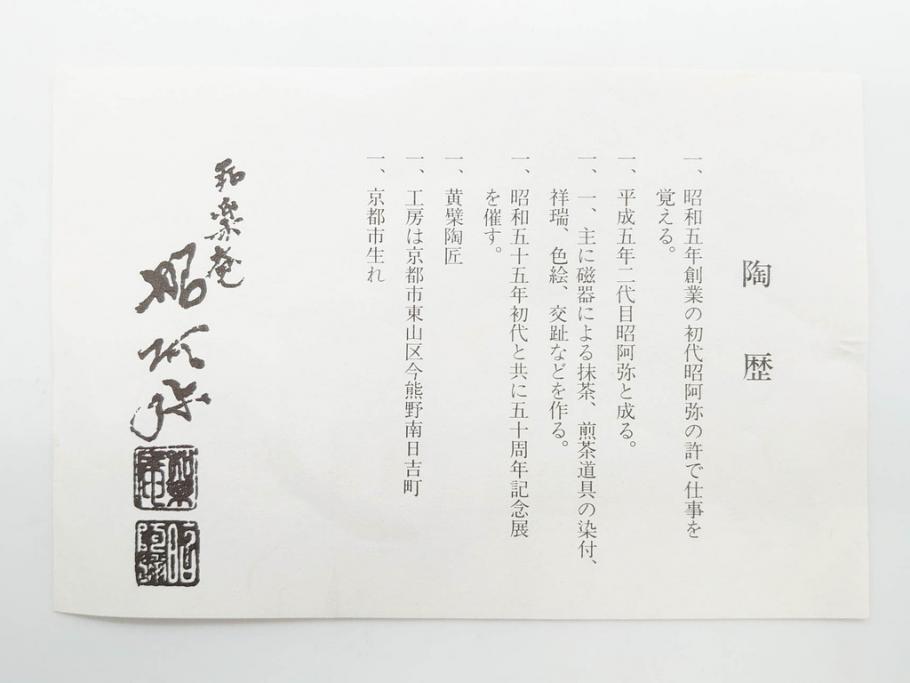 陶歴
一、昭和五年創業の初代昭阿弥の許で仕事を
覚える。
一、平成五年二代目昭阿弥と成る。
一、一、主に磁器による抹茶、煎茶道具の染付、
祥瑞、色絵、交趾などを作る。
一、昭和五十五年初代と共に五十周年記念展
を催す。
一、黄檗陶匠
一、工房は京都市東山区今熊野南日吉町
一、京都市生れ
和楽庵
昭阿弥
和楽庵
昭阿弥